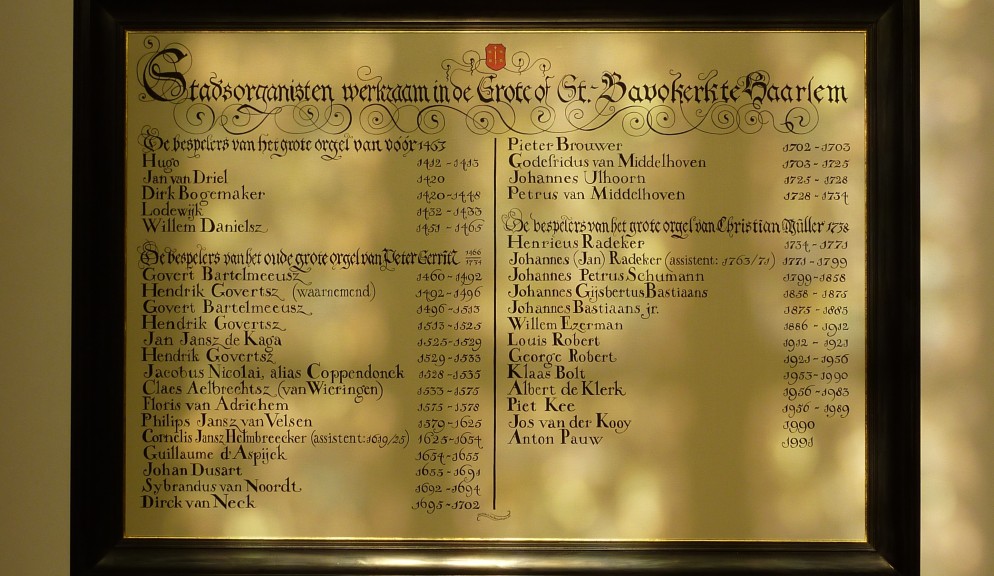 Stadsorganisten werkzaam in de Grote of St.-Bavokerk te Haarlem
De bespelers van het grote orgel van vóór 1463
Hugo 1412-1413
Jan van Driel 1420
Dirk Bogemaker 1420-1448
Lodewijk 1432-1433
Willem Danielsz 1451-1465
De bespelers van het oude grote orgel van Peter Gerritz 1466 1734
Govert Bartelmeeusz 1460-1492
Hendrik Govertsz (waarnemend) 1492-1496
Govert Bartelmeeusz 1496-1513
Hendrik Govertsz 1513-1525
Jan Jansz de Kaga 1525-1529
Hendrik Govertsz 1529-1533
Jacobus Nicolai, alias Coppendonck 1528-1535
Claes Aelbrechtsz (van Wieringen) 1533-1575
Floris van Adrichem 1575-1578
Philips Jansz van Velsen 1579-1625
Cornelis Jansz Helmbreecker (assistent: 1619/25) 1625-1654
Guillaume d'Aspijck 1654-1655
Johan Dusart 1655-1691
Sybrandus van Noordt 1692-1694
Dirck van Neck 1695-1702
Pieter Brouwer 1702-1703
Godefridus van Middelhoven 1703-1725
Johannes Ulhoorn 1725-1728
Petrus van Middelhoven 1728-1734
De bespelers van het grote orgel van Christian Müller 1738
Henricus Radeker 1734-1771
Johannes (Jan) Radeker (assistent: 1763/71) 1771-1799
Johannes Petrus Schumann 1799-1858
Johannes Gijsbertus Bastiaans 1858-1875
Johannes Bastiaans jr. 1875-1885
Willem Ezerman 1886-1912
Louis Robert 1912-1921
George Robert 1921-1956
Klaas Bolt 1953-1990
Albert de Klerk 1956-1983
Piet Kee 1956-1989
Jos van der Kooy 1990
Anton Pauw 1991